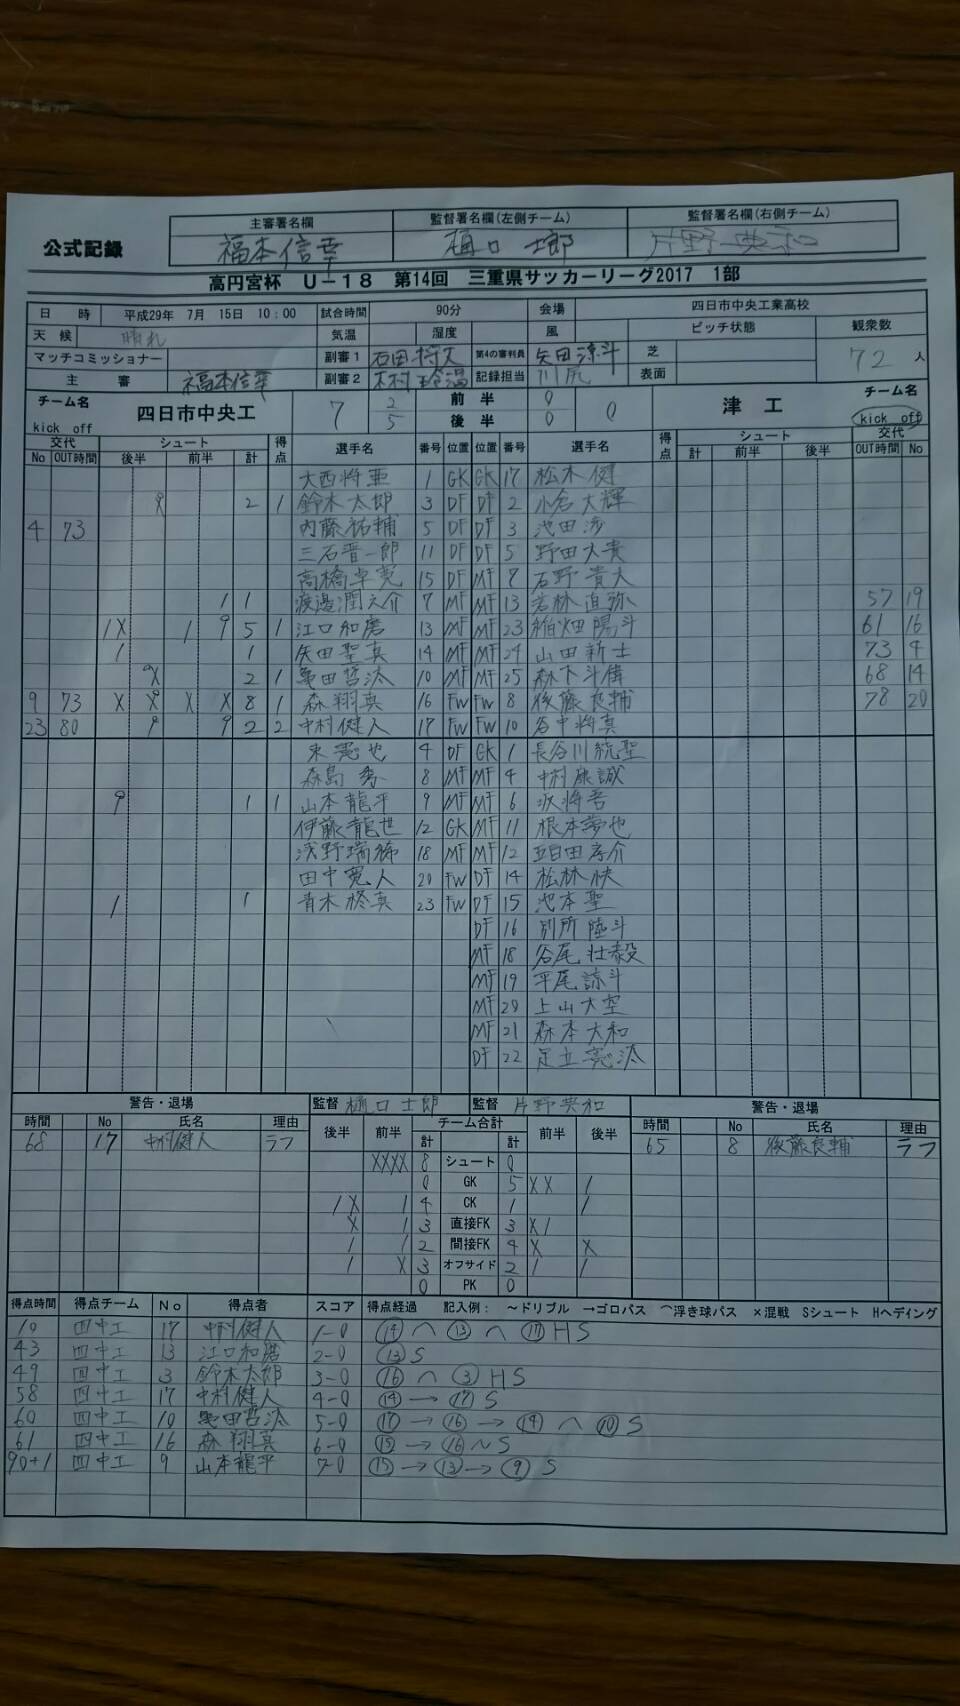 公式記録
主審署名欄 監督署名欄(左側チーム) 監督署名欄(右側チーム)
福本信幸 樋口士郎 片野典和
高円宮杯 U-18 第14回 三重県サッカーリーグ2017 1部
日 時 平成29年 7月 15日 10:00 試合時間 90分 会場 四日市中央工業高校
天候 晴れ 気温 湿度 風 ピッチ状態 観衆数
マッチコミッショナー 副審1 石田将大 第4の審判員 矢田涼斗 芝 72人
主審 福本信幸 副審2 木村 記録担当 川尻 表面
チーム名 四日市中央工 7 2 前半 0 0 津 工 チーム名
kick off 5 後半 0 kick off
交代 シュート 得点 選手名 番号 位置 位置 番号 選手名 得点 シュート 交代
No OUT時間 後半 前半 計 計 前半 後半 OUT時間 No
大西将亜 1 GK GK 17 松木健
9X 2 1 鈴木太郎 3 DF DF 2 小倉大輝
4 73 内藤祐輔 5 DF DF 3 池田渉
三石晋一郎 11 DF DF 5 野田大貴
高橋卓寛 15 DF MF 7 石野貴大
1 1 渡邊潤之介 7 MF MF 13 若林直弥 57 19
1X 1 9 5 1 江口和磨 13 MF MF 23 稲畑陽斗 61 16
1 1 矢田聖真 14 MF MF 24 山田新士 73 4
9X 2 1 亀田哲汰 10 MF MF 25 森下斗偉 68 14
9 73 X X X X 8 1 森翔真 16 FW FW 8 後藤良輔 78 20
23 80 9 9 2 2 中村健人 17 FW FW 10 谷中将真
東憲也 4 DF GK 1 長谷川統聖
森島秀 8 MF MF 4 中村康誠
9 1 1 山本龍平 9 MF MF 6 沢将吾
伊藤龍世 12 GK MF 11 根本夢也
浅野瑞稀 18 MF MF 12 五百田孝介
田中寛人 20 FW DF 14 松林快
1 1 青木柊真 23 FW DF 15 池本聖
DF 16 別所陸斗
MF 18 谷尾壮毅
MF 19 平尾諒斗
MF 20 上山大空
MF 21 森本大和
DF 22 足立亮汰
警告・退場 監督 樋口士郎 監督 片野典和 警告・退場
時間 No 氏名 理由 後半 前半 チーム合計 前半 後半 時間 No 氏名 理由
計 計
68 17 中村健人 ラフ 65 8 後藤良輔 ラフ
XXXX 8 シュート 0
0 GK 5 XX 1
1X 1 4 CK 1 1
X 1 3 直接FK 3 X1
1 1 2 間接FK 4 X X
1 X 3 オフサイド 2 1 1
0 PK 0
得点時間 得点チーム No 得点者 スコア 得点経過 記入例: ～ドリブル →ゴロパス ⌒浮き球パス ×混戦 Sシュート Hヘディング
10 四中工 17 中村健人 1-0 ⑭ ⌒ ⑬ ⌒ ⑰ H S
43 四中工 13 江口和磨 2-0 ⑬ S
49 四中工 3 鈴木太郎 3-0 ⑯ ⌒ ③ H S
58 四中工 17 中村健人 4-0 ⑭ → ⑰ S
60 四中工 10 亀田哲汰 5-0 ⑰ → ⑯ → ⑭ ⌒ ⑩ S
61 四中工 16 森翔真 6-0 ⑮ → ⑯ ～ S
90+1 四中工 9 山本龍平 7-0 ⑮ → ⑬ → ⑨ S